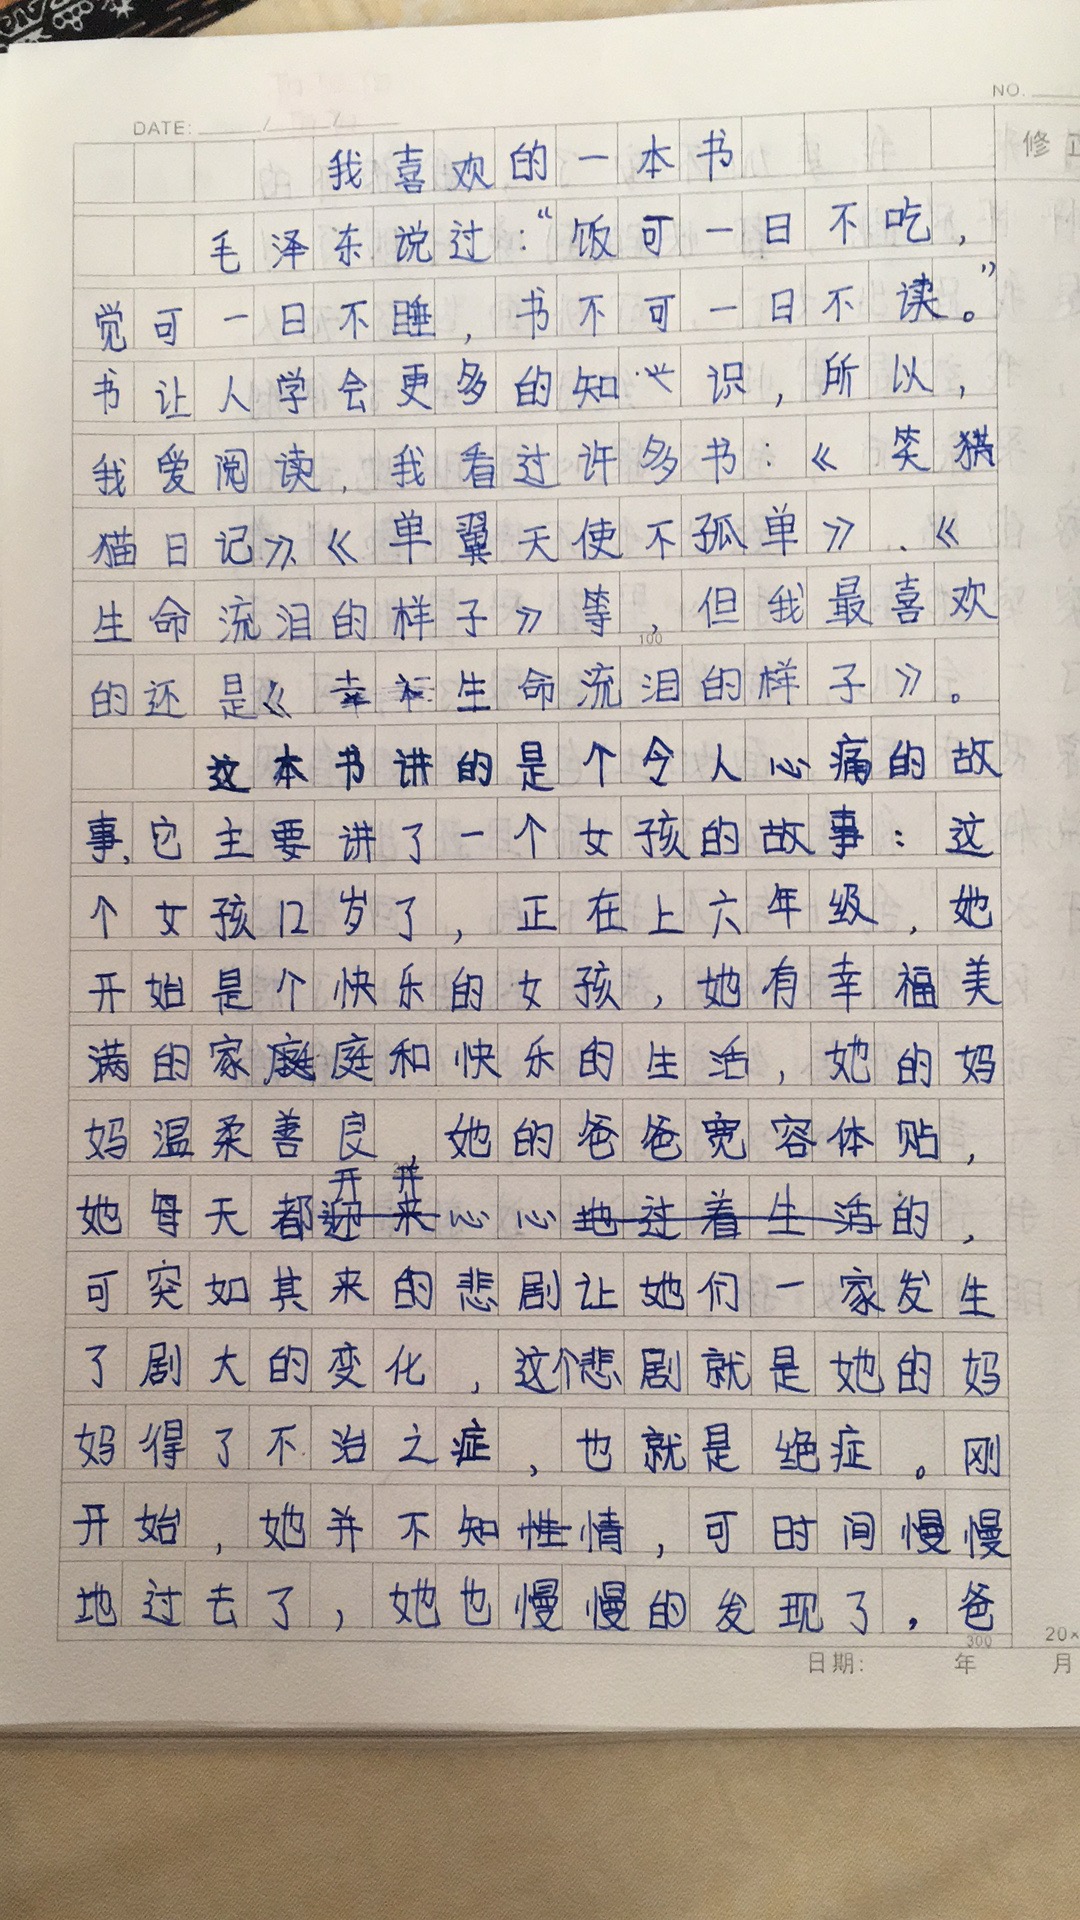 NO.
DATE: / /
修正
我喜欢的一本书
毛泽东说过：“饭可一日不吃，
觉可一日不睡，书不可一日不读。”
书让人学会更多的知识，所以，
我爱阅读，我看过许多书：《笑猫
猫日记》、《单翼天使不孤单》、《
生命流泪的样子》等，但我最喜欢
100
的还是《生命流泪的样子》。
这本书讲的是个令人心痛的故
事，它主要讲了一个女孩的故事：这
个女孩12岁了，正在上六年级，她
开始是个快乐的女孩，她有幸福美
满的家庭和快乐的生活，她的妈
妈温柔善良，她的爸爸宽容体贴，
她每天都开开心心的，
可突如其来的悲剧让她们一家发生
了剧大的变化，这个悲剧就是她的妈
妈得了不治之症，也就是绝症。刚
开始，她并不知情，可时间慢慢
地过去了，她也慢慢的发现了，爸
300
20×
日期： 年 月